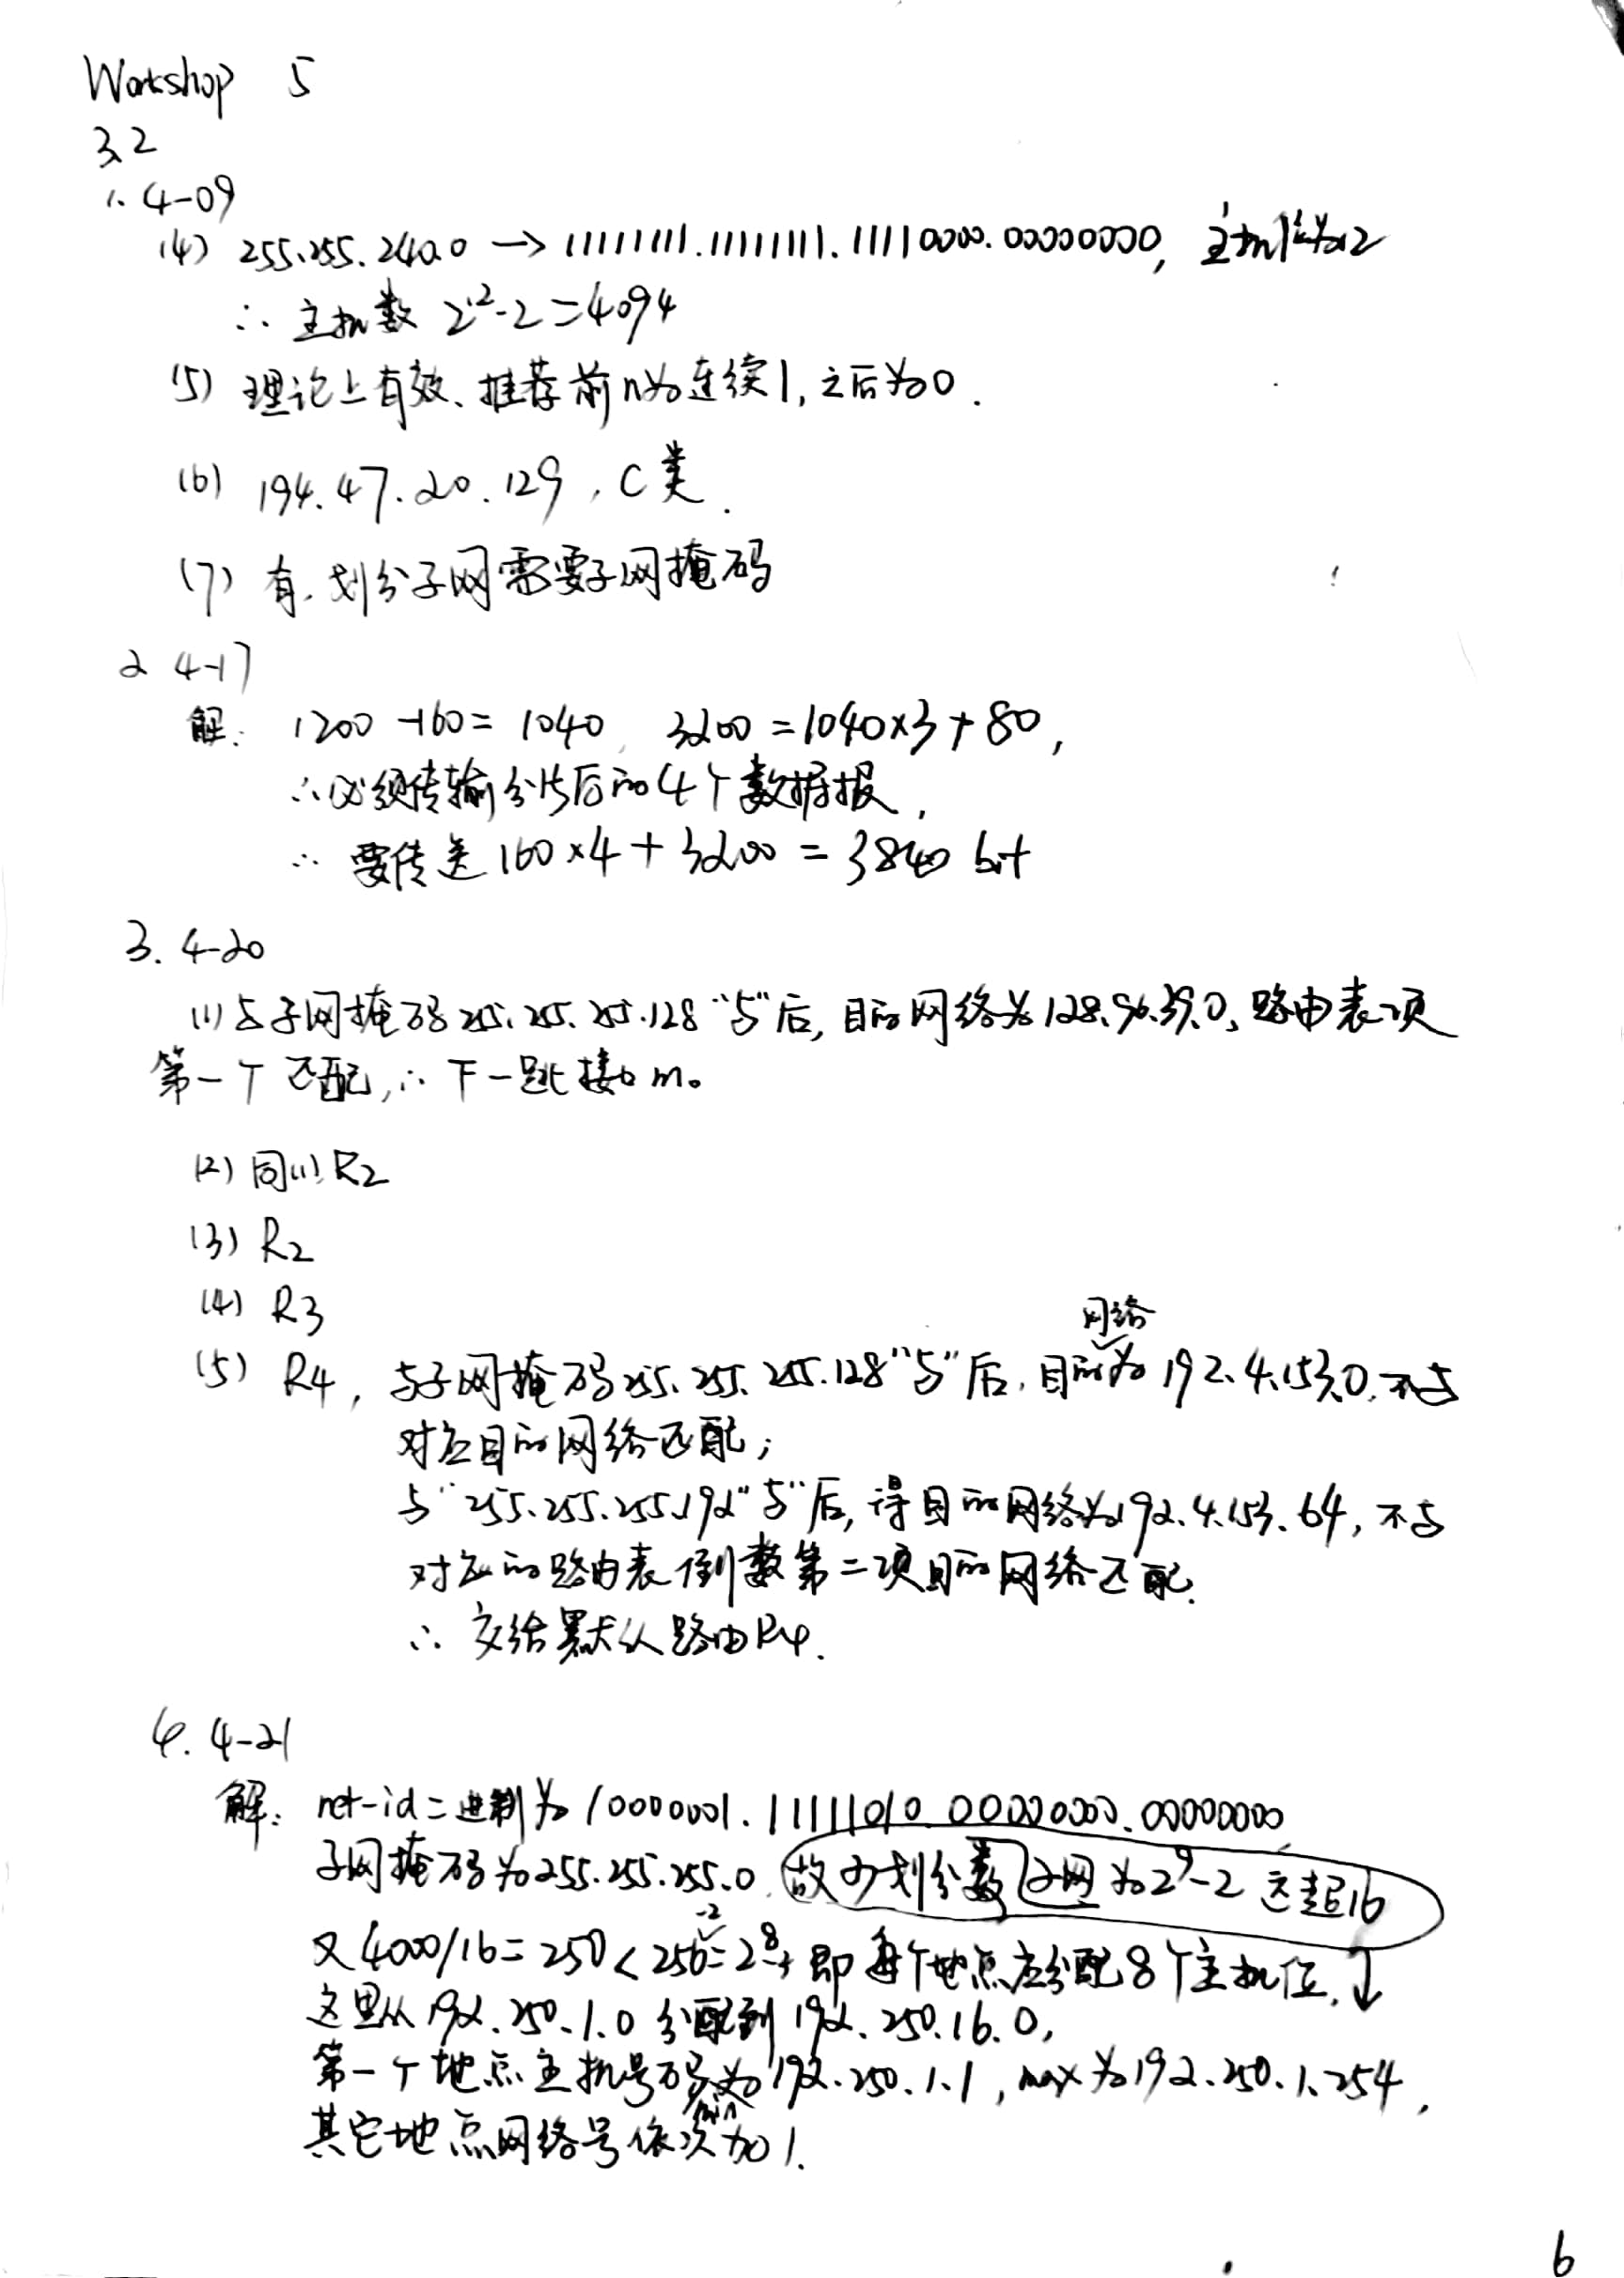 Workshop 5
3.2
1. 4-09
(4) 255.255.240.0 → 11111111.11111111.11110000.00000000, 主机位为12
∴ 主机数 2¹²-2=4094
(5) 理论上有效、推荐前n为连续1,之后为0.
(6) 194.47.20.129, C类.
(7) 有,划分子网需要子网掩码
2 4-17
解: 1200-160=1040, 3200=1040×3+80,
∴必须传输分片后的4个数据报,
∴ 要传送160×4+3200=3840 bit
3. 4-20
(1)与子网掩码255.255.255.128"与"后,目的网络为128.96.39.0,路由表项
第一个匹配,∴下一跳接口m。
(2) 同(1) R2
(3) R2
(4) R3
网络
(5) R4, 与子网掩码255.255.255.128"与"后,目的为192.4.153.0,不与
对应目的网络匹配;
与"255.255.255.192"与"后,得目的网络为192.4.153.64,不与
对应的路由表倒数第二项目的网络匹配.
∴ 交给默认路由R4.
4. 4-21
解: net-id二进制为10000001.11111010.00000000.00000000
子网掩码为255.255.255.0,故可划分数子网为2⁹-2 远超16
-2
又4000/16=250<256=2⁸, 即每个地点应分配8个主机位,↓
这里从192.250.1.0分配到192.250.16.0,
第一个地点主机号码为192.250.1.1, max为192.250.1.254,
min
其它地点网络号依次加1.
6